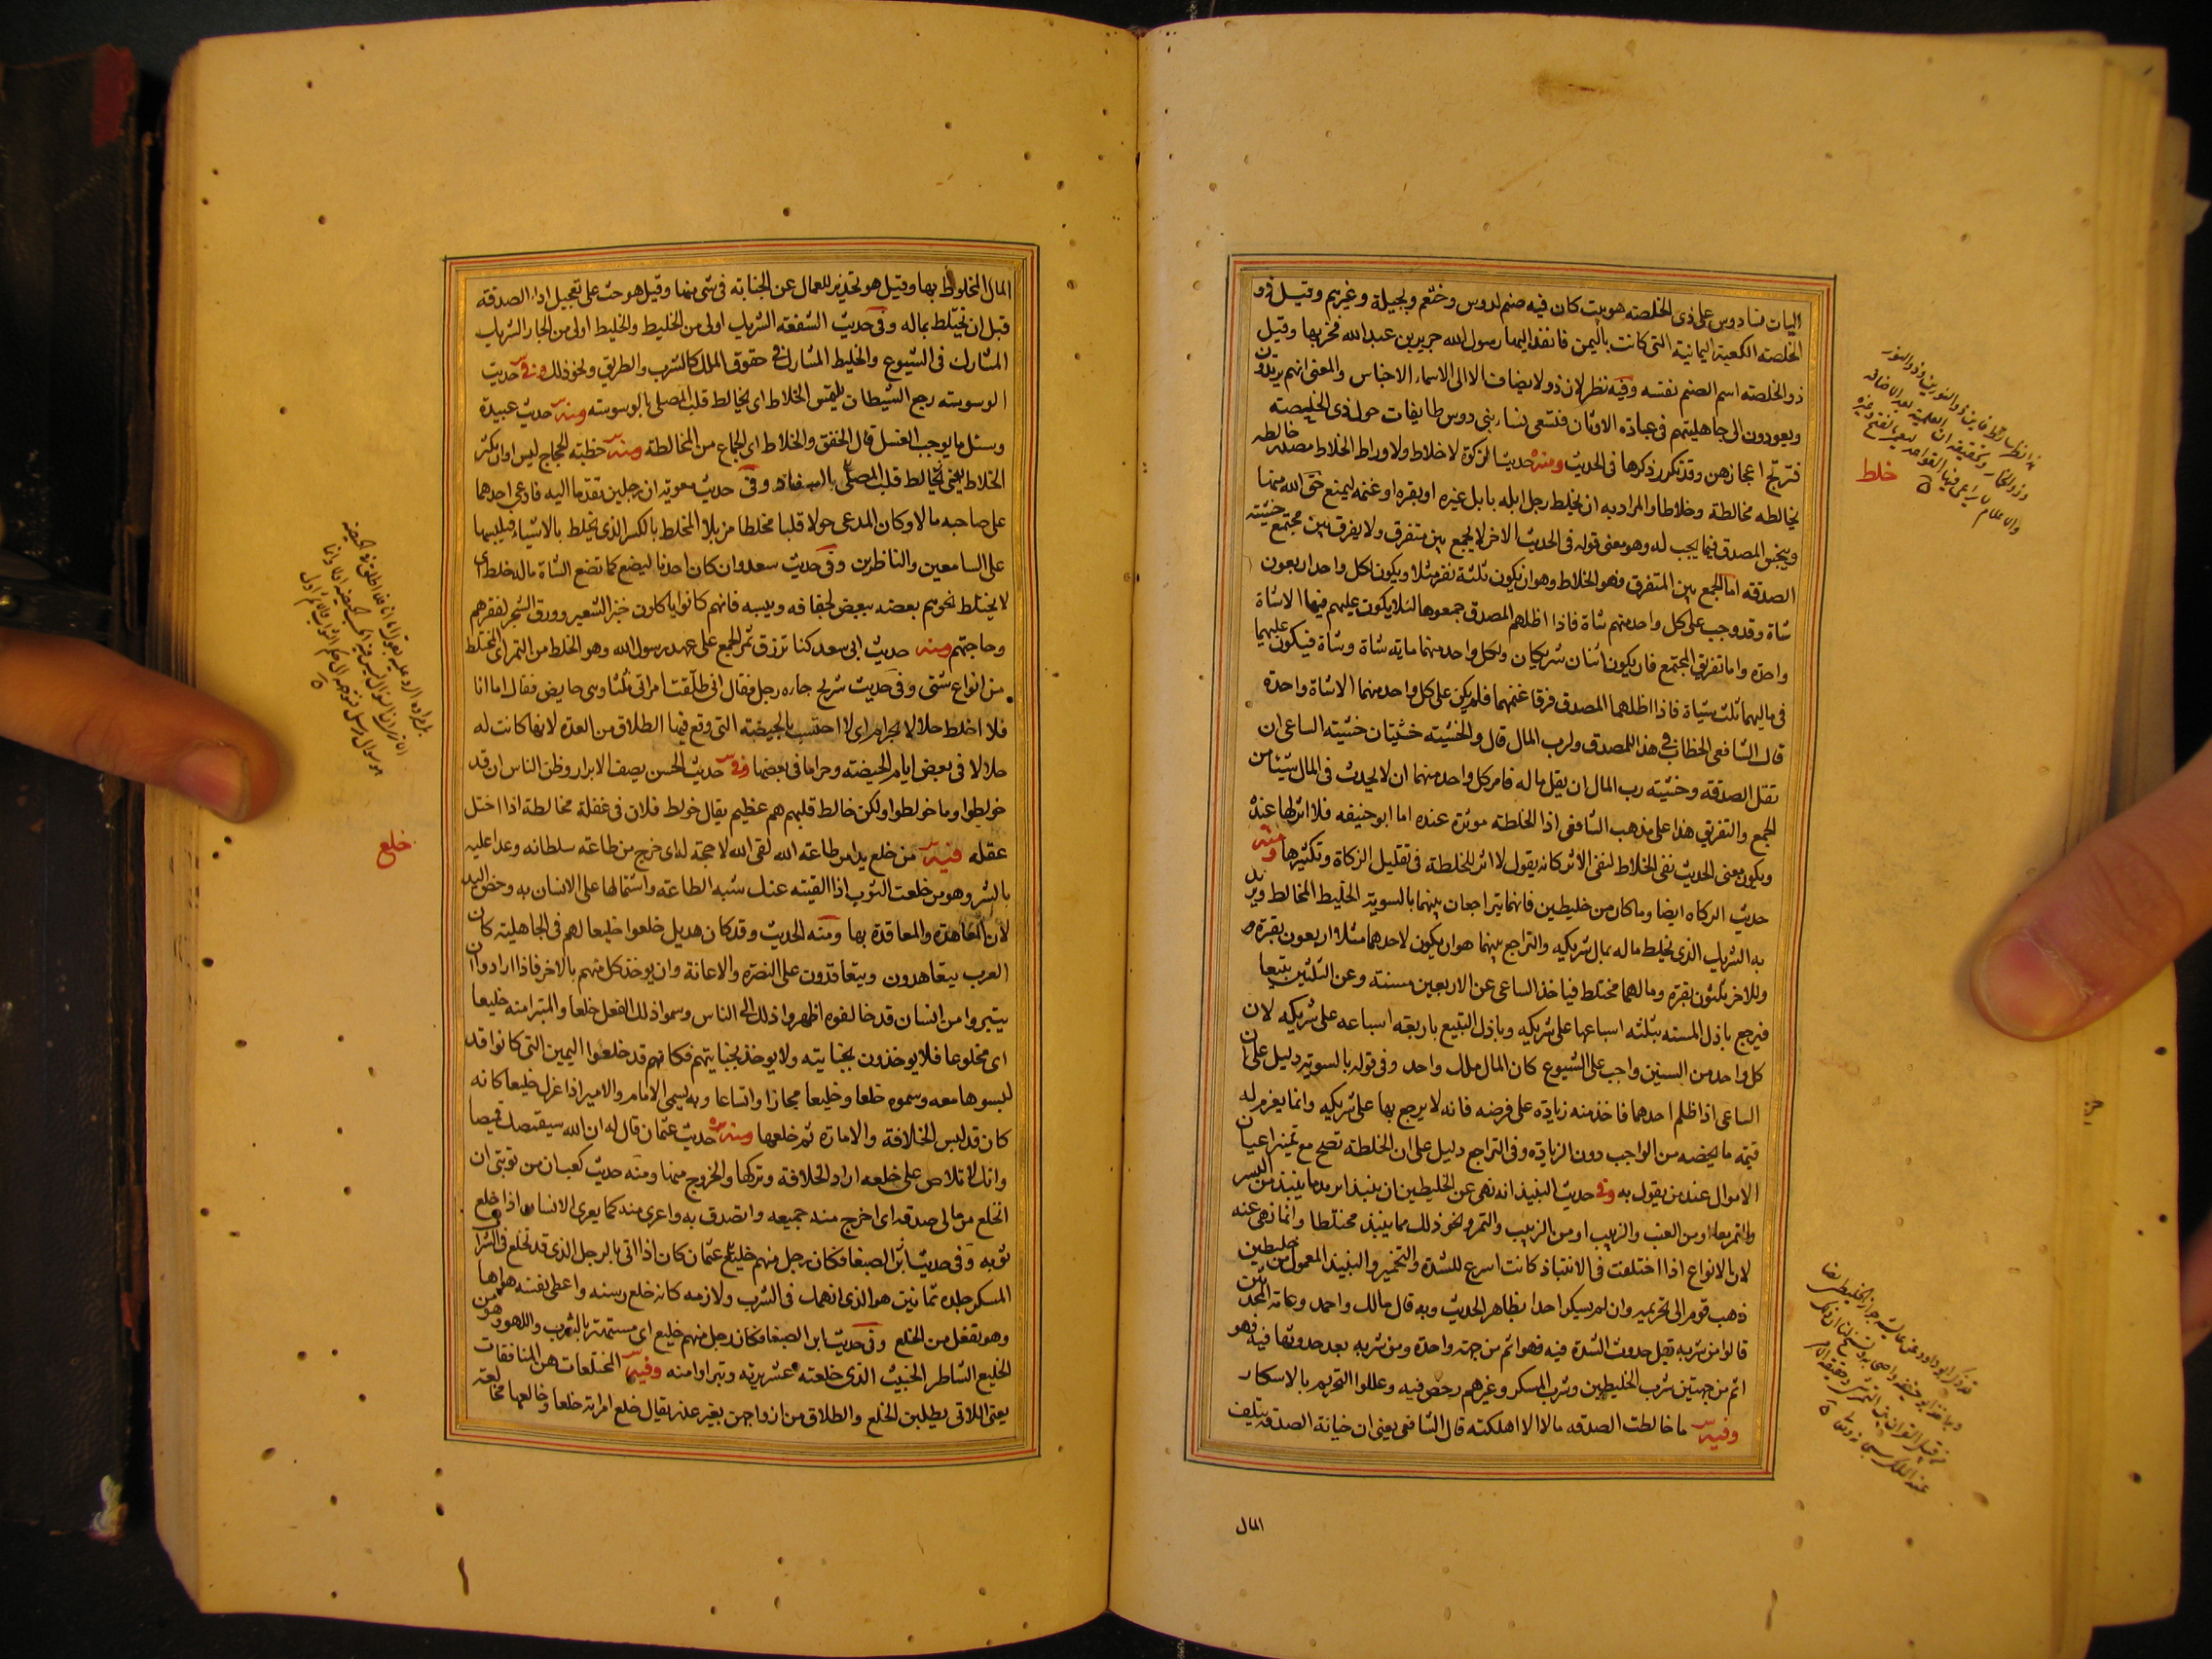 اليات نسا دوس على ذى الخلصته هو بيت كان فيه صنم لدوس وخثعم وبجيلة وغيرهم وقيل ذو
الخلصته الكعبة اليمانية التى كانت باليمن فانفذ اليها رسول الله جرير بن عبد الله فخربها وقيل
ذو الخلصته اسم الصنم نفسه وفيه نظر لان ذو لا يضاف الا الى الاسماء الاجناس والمعنى انهم يرتدون
ويعودون الى جاهليتهم فى عبادة الاوثان فتسعى نساء بنى دوس طايفات حول ذى الخليصته
فترتج اعجازهن وقد تكرر ذكرها فى الحديث ومنه حديث الزكوة لا خلاط ولا وراط الخلاط مصدر خالطه
يخالطه مخالطة وخلاطا والمراد به ان يخلط رجل ابله بابل غيره او بقره او غنمه ليمنع حق الله منها
ويبخس المصدق فيما يجب له وهو معنى قوله فى الحديث الاخر لا يجمع بين متفرق ولا يفرق بين مجتمع خشيته
الصدقه اما الجمع بين المتفرق فهو الخلاط وهو ان يكون ثلثة نفر مثلا ويكون لكل واحد اربعون
شاة وقد وجب على كل واحد منهم شاة فاذا اظلهم المصدق جمعوها لئلا يكون عليهم فيها الا شاة
واحدة واما تفريق المجتمع فان يكون اثنان شريكان ولكل واحد منهما ماية شاة وشاة فيكون عليهما
فى ماليهما ثلث شياة فاذا اظلهما المصدق فرقا غنمهما فلم يكن على كل واحد منهما الا شاة واحدة
قال الشافعى الخطاب فى هذا للمصدق ولرب المال قال والخشيته خشيتان خشيته الساعى ان
تقل الصدقة وخشيته رب المال ان يقل ماله فامر كل واحد منهما ان لا يحدث فى المال شيئا من
الجمع والتفريق هذا على مذهب الشافعى اذ الخلطه موثرة عنده اما ابو حنيفه فلا اثر لها عنده
ويكون معنى الحديث نفى الخلاط لنفى الاثر كانه يقول لا اثر للخلطة فى تقليل الزكاة وتكثيرها ومنه
حديث الزكاه ايضا وما كان من خليطين فانهما يتراجعان بينهما بالسوية الخليط المخالط ويريد
به الشريك الذى يخلط ماله بمال شريكه والتراجع بينهما هو ان يكون لاحدهما مثلا اربعون بقرة و
وللاخر ثلثون بقرة ومالهما مختلط فياخذ الساعى عن الاربعين مسنة وعن الثلثين تبيعا
فيرجع باذل المسنه بثلثه اسباعها على شريكه وباذل التبيع باربعه اسباعه على شريكه لان
كل واحد من السنين واجب على الشيوع كان المال ملك واحد وفى قوله بالسوية دليل على ان
الساعى اذا ظلم احدهما فاخذ منه زيادة على فرضه فانه لا يرجع بها على شريكه وانما يغرم له
قيمة ما يخصه من الواجب دون الزيادة وفى التراجع دليل على ان الخلطة تصح مع تميز اعيان
الاموال عند من يقول به وفى حديث النبيذ انه نهى عن الخليطين ان ينبذا يريد ما ينبذ من البسر
والتمر معا او من العنب والزبيب او من الزبيب والتمر ونحو ذلك مما ينبذ مختلطا وانما نهى عنه
لان الانواع اذا اختلفت فى الانتباذ كانت اسرع للشدة والتخمير والنبيذ المعمول من خليطين
ذهب قوم الى تحريمه وان لم يسكر اخذا بظاهر الحديث وبه قال مالك واحمد وعامة المحدثين
قالوا من شربه قبل حدوث الشدة فيه فهو اثم من جهة واحدة ومن شربه بعد حدوثها فيه فهو
اثم من جهتين شرب الخليطين وشرب المسكر وغيرهم رخص فيه وعللوا التحريم بالاسكار
وفيه ما خالطت الصدقه مالا الا اهلكته قال الشافعى يعنى ان خيانة الصدقة يتلف
المال
خلط
المال المخلوط بها وقيل هو تحذير للعمال عن الخيانه فى شى منها وقيل هو حث على تعجيل اداء الصدقة
قبل ان تختلط بماله وفى حديث الشفعه الشريك اولى من الخليط والخليط اولى من الجار الشريك
المشارك فى الشيوع والخليط المشارك فى حقوق الملك كالشرب والطريق ونحو ذلك وفى حديث
الوسوسته رجع الشيطان يلتمس الخلاط اى يخالط قلب المصلى بالوسوسته ومنه حديث عبيدة
وسئل ما يوجب الغسل قال الخفق والخلاط اى الجماع من المخالطة ومنه خطبته الحجاج ليس اوان يكثر
الخلاط يعنى وفى حديث معوية ان رجلين تقدما اليه فادعى احدهما
على صاحبه مالا وكان المدعى حولا قلبا مخلطا مزيلا المخلط بالكسر الذى يخلط بالاشياء فيلبسها
على السامعين والناظرين وفى حديث سعد وان كان احدنا ليضع كما تضع الشاة ماله خلط اى
لا يختلط نجوهم بعضه ببعض لجفافه ويبسه فانهم كانوا ياكلون خبز الشعير وورق الشجر لفقرهم
وحاجتهم ومنه حديث ابى سعد كنا نرزق تمر الجمع على عهد رسول الله وهو الخلط من التمر اى المختلط
من انواع شتى وفى حديث شريح جاءه رجل فقال انى طلقت امراتى ثلثا وهى حايض فقال اما انا
فلا اخلط حلالا بحرام اى لا احتسب بالحيضته التى وقع فيها الطلاق من العدة لانها كانت له
حلالا فى بعض ايام الحيضته وحراما فى بعضها وفى حديث الحسن يصف الابرار وظن الناس ان قد
خولطوا وما خولطوا ولكن خالط قلبهم هم عظيم يقال خولط فلان فى عقله مخالطة اذا اختل
عقله فيه من خلع يدا من طاعته الله لقى الله لا حجة له اى خرج من طاعته سلطانه وعدا عليه
بالشر وهو من خلعت الثوب اذا القيته عنك شبه الطاعته واشتمالها على الانسان به وخص اليد
لان المعاهدة والمعاقدة بها ومنه الحديث وقد كان هذيل خلعوا خليعا لهم فى الجاهلية كان
العرب يتعاهدون ويتعاقدون على النصرة والاعانة وان يوخذ كل منهم بالاخر فاذا ارادوا ان
يتبروا من انسان قد حالفوه اظهروا ذلك الى الناس وسموا ذلك الفعل خلعا والمتبرا منه خليعا
اى مخلوعا فلا يوخذون بجنايته ولا يوخذ بجنايتهم فكانهم قد خلعوا اليمين التى كانوا قد
لبسوها معه وسموه خلعا وخليعا مجازا واتساعا وبه يسمى الامام والامير اذا عزل خليعا كانه
كان قد لبس الخلافة والامارة ثم خلعها ومنه حديث عثمان قال له ان الله سيقمصك قميصا
وانك لا تلاص على خلعه اراد الخلافة وتركها والخروج منها ومنه حديث كعب ان من توبتى ان
انخلع من مالى صدقه اى اخرج منه جميعه واتصدق به واعرى منه كما يعرى الانسان اذا خلع
ثوبه وفى حديث ابن الصبغا فكان رجل منهم خليع عثمان كان اذا اتى بالرجل الذى قد تخلع فى الشراب
المسكر جلده ثمانين هو الذى انهمك فى الشرب ولازمه كانه خلع رسنه واعطى نفسه هواها
وهو تفعل من الخلع وفى حديث ابن الصبغا فكان رجل منهم خليع اى مستهتر بالشرب واللهو وهو من
الخليع الشاطر الخبيث الذى خلعته عشيرته وتبراوا منه وفيه المختلعات هن المنافقات
يعنى اللاتى يطلبن الخلع والطلاق من ازواجهن بغير عذر يقال خلع امراته خلعا وخالعها مخالعته
خلع